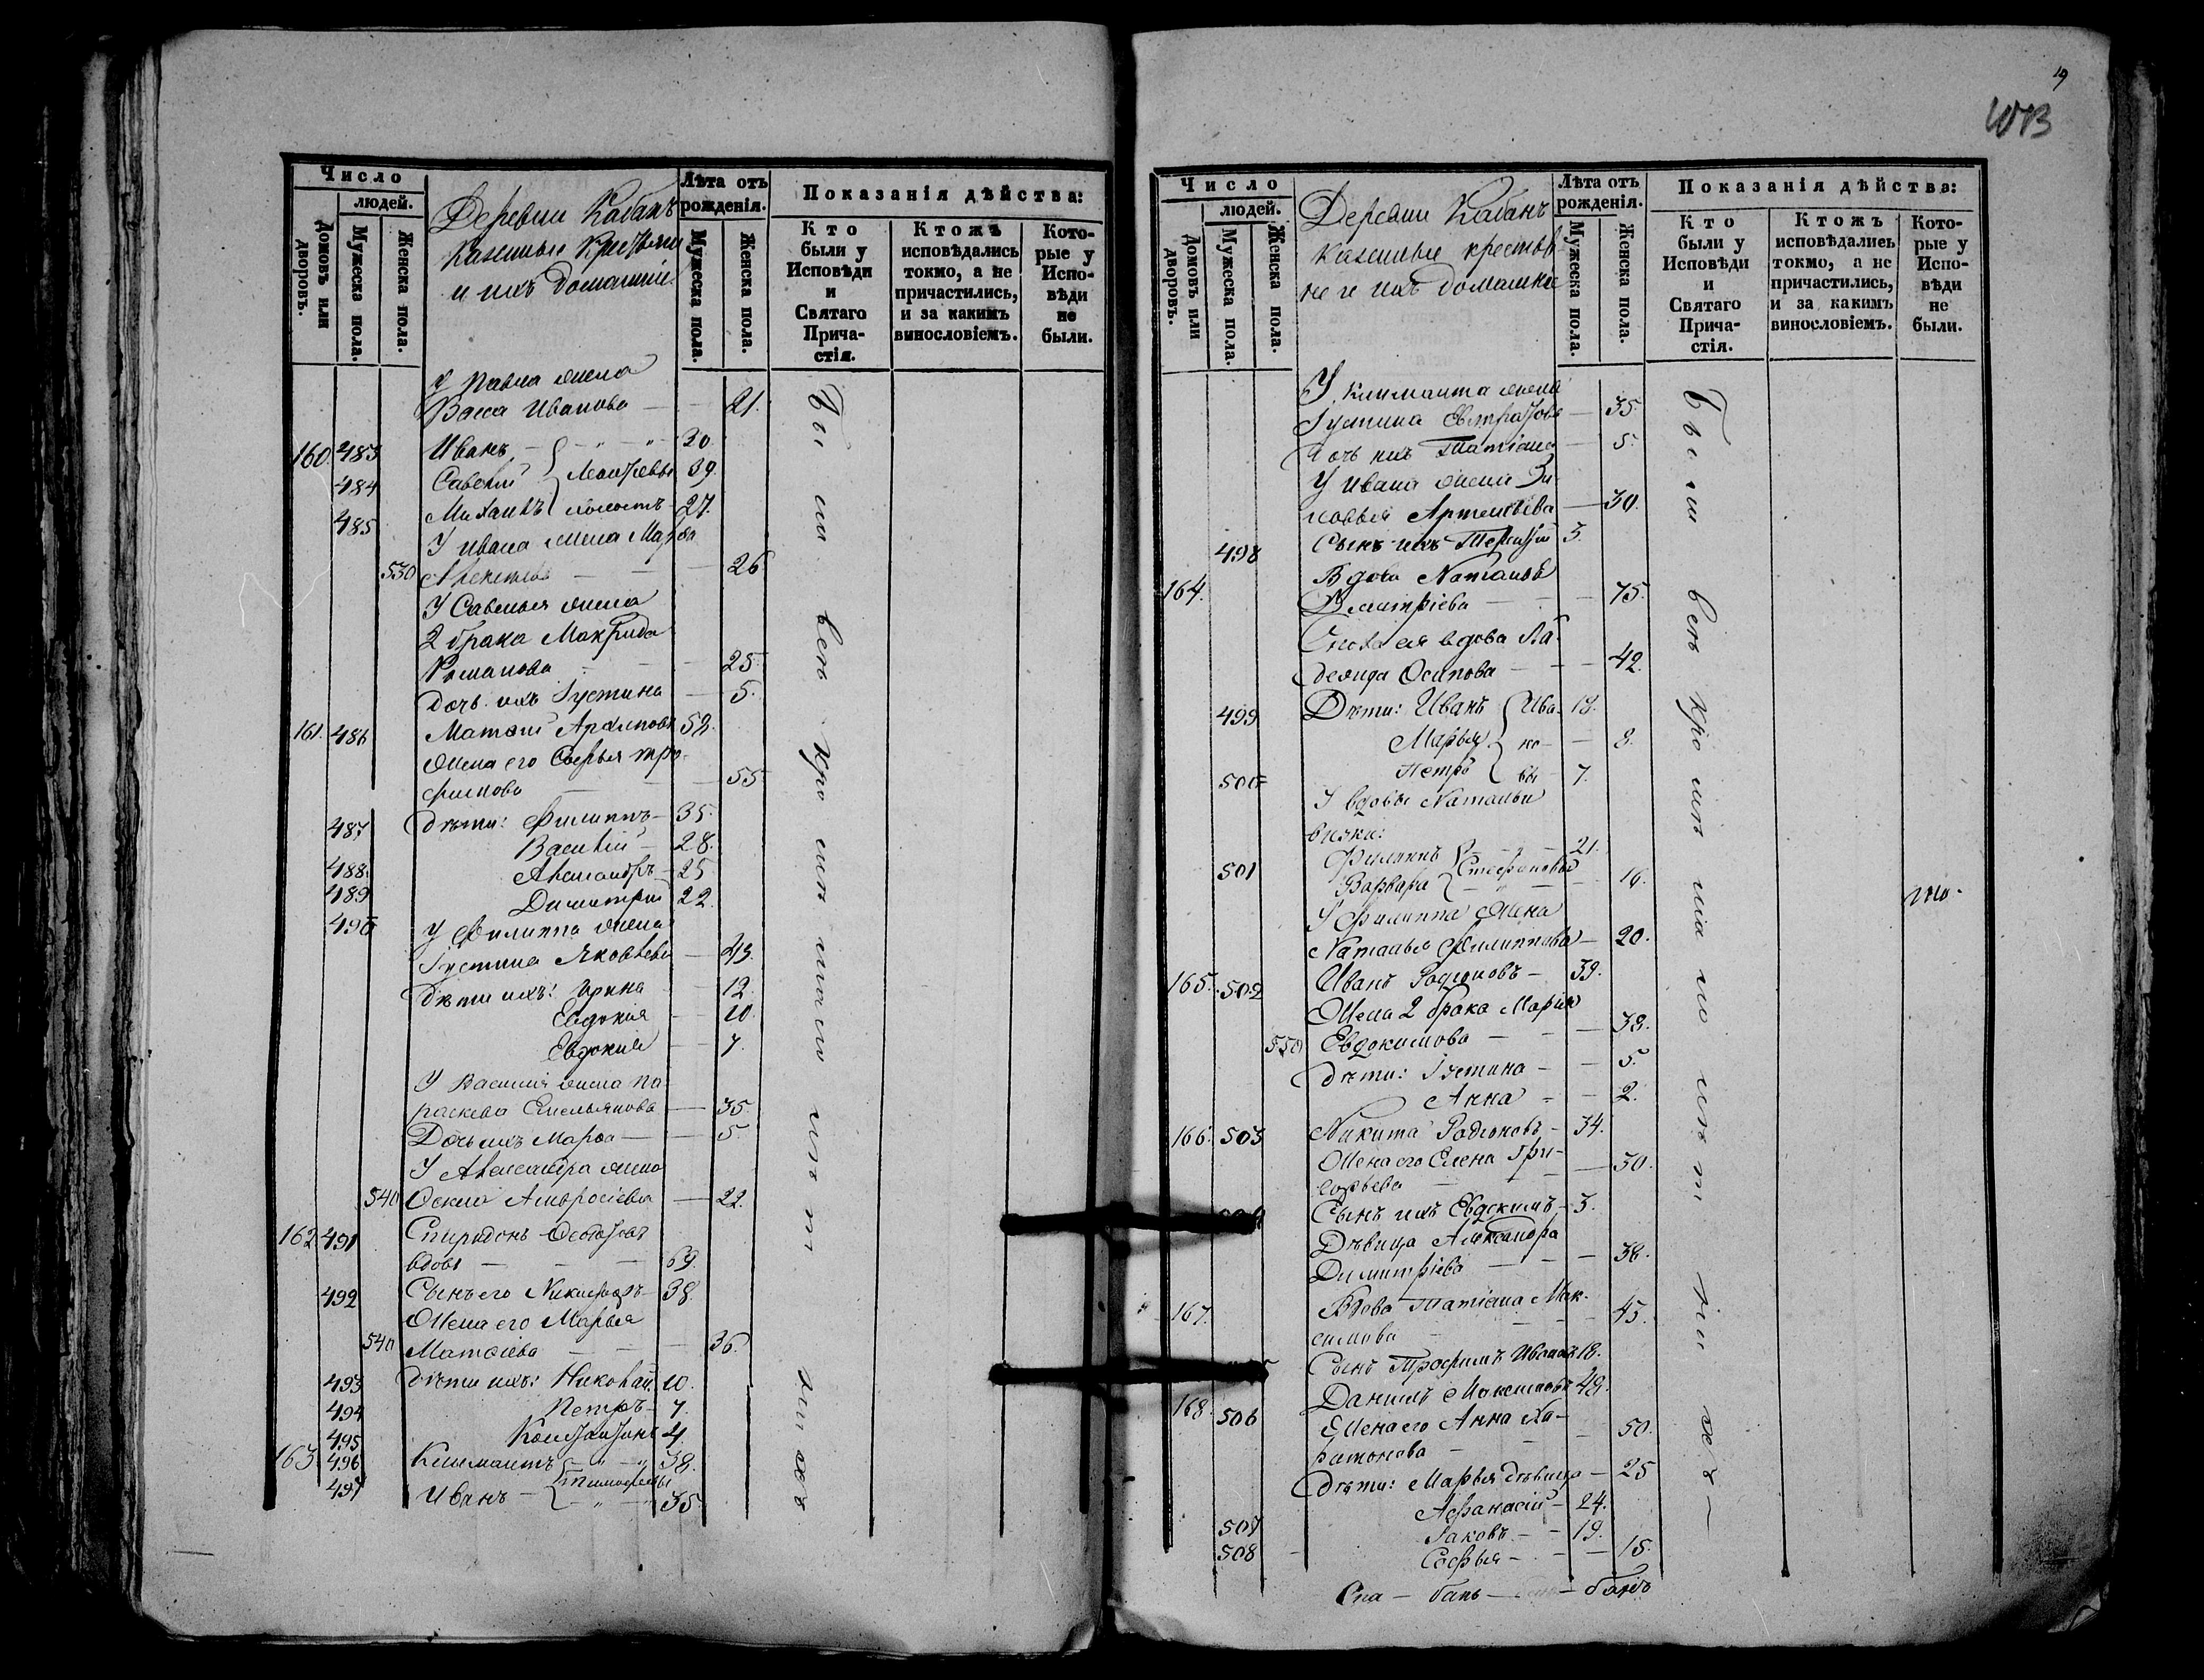 Число
людей.
Домовъ или дворовъ.
Мужеска пола.
Женска пола.
Деревни Кабанъ
Казенные Крестьяни
и ихъ Домашніе
Лѣта отъ
рожденія.
Мужеска пола.
Женска пола.
Показанія дѣйства:
Кто
были у
Исповѣди
и
Святаго
Прича-
стія.
Ктожъ
исповѣдались
токмо, а не
причастились,
и за какимъ
винословіемъ.
Кото-
рые у
Испо-
вѣди
не
были.
У Павла жена
Васса Иванова — 21.
160 483 Иванъ — " — " — 30.
484 Савелій 39.
485 Михаилъ 27.
У Ивана жена Марѳа
530 26
У Савелья жена
2 брака Макрида
Романова — 25.
дочь ихъ Густина — 5.
161. 486 Матѳей Архиповъ 59.
жена его Софья Тро-
фимова — 55
487 дѣти: Филиппъ — 35.
488. Василій — 28.
489 Александръ — 25
490 Димитрій 22.
У Филиппа жена
Густина Яковлева — 43.
дѣти ихъ: Ирина — 12.
Евдокія — 10.
Евдокия — 7.
У Василія жена Па-
раскева Емельянова — 35.
Дочь ихъ Марѳа — 5.
У Александра жена
540 Амвросіева — 22.
162. 491 Спиридонъ
вдовъ — 69.
492 Сынъ его Никифоръ — 38.
Жена его Марья
540 Матѳіева — 36.
493 дѣти ихъ: Николай 10.
494 Петръ — 7.
495 Константинъ 4
163. 496 Климантъ — " — " 38.
Тимофеевы
497 Иванъ — " — " 35
19
Число
людей.
Домовъ или дворовъ.
Мужеска пола.
Женска пола.
Деревни Кабанъ
Казенные крестья-
не и ихъ домашніе
Лѣта отъ
рожденія.
Мужеска пола.
Женска пола.
Показанія дѣйства:
Кто
были у
Исповѣди
и
Святаго
Прича-
стія.
Ктожъ
исповѣдались
токмо, а не
причастились,
и за какимъ
винословіемъ.
Кото-
рые у
Испо-
вѣди
не
были.
У Климанта жена
Густина Евстратова — 35.
дочь ихъ Татіана — 5.
У Ивана жена Зи-
новья Артемьева — 30.
498 Сынъ ихъ 3.
164. Вдова Наталья
Димитріева — 75.
Сноха ея вдова
Осипова — 42.
499 Дѣти: Иванъ Ива- 18.
Марья но- — 8.
500 Петръ вы — 7.
У вдовы Натальи
внуки:
501 Филиппъ — " — 21.
Варвара Стефановы — 16.
У Филиппа жена
Наталья Филиппова — 20.
165. 502 Иванъ Родіоновъ — 39.
Жена 2 брака Марія
550 Евдокимова — 39.
дѣти: Густина — 5.
Анна — 2.
166. 503 Никита Родіоновъ — 34.
Жена его Елена Гри-
горьева — 30.
Сынъ ихъ Евдокимъ — 3.
Дѣвица Александра
Димитріева — 38.
167. Вдова Татіана Мак-
симова — 45.
Сынъ Трофимъ Ивановъ 18.
168. 506 Даніилъ 49.
Жена его Анна Ха-
ритонова — 50.
дѣти: Марья дѣвица — 25
507 Афанасій — 24.
508 Іаковъ — 19.
Софья — 15.